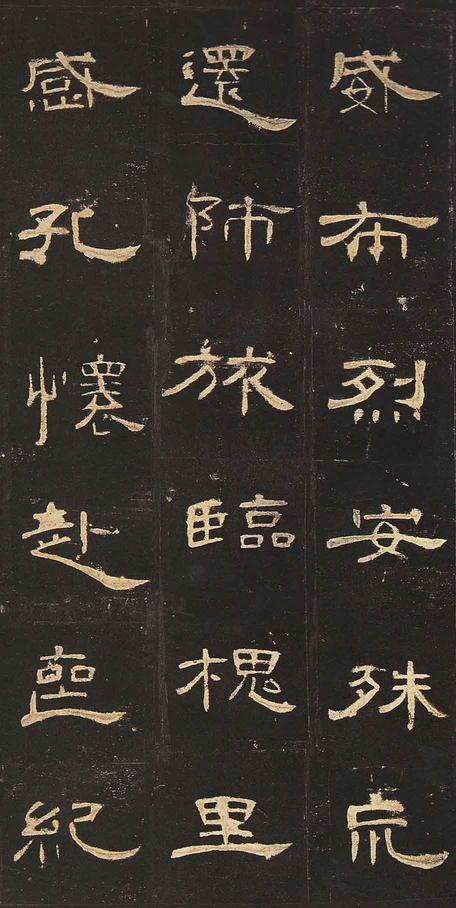 威布烈安殊荒
還師旅臨槐里
感孔懷赴喪紀